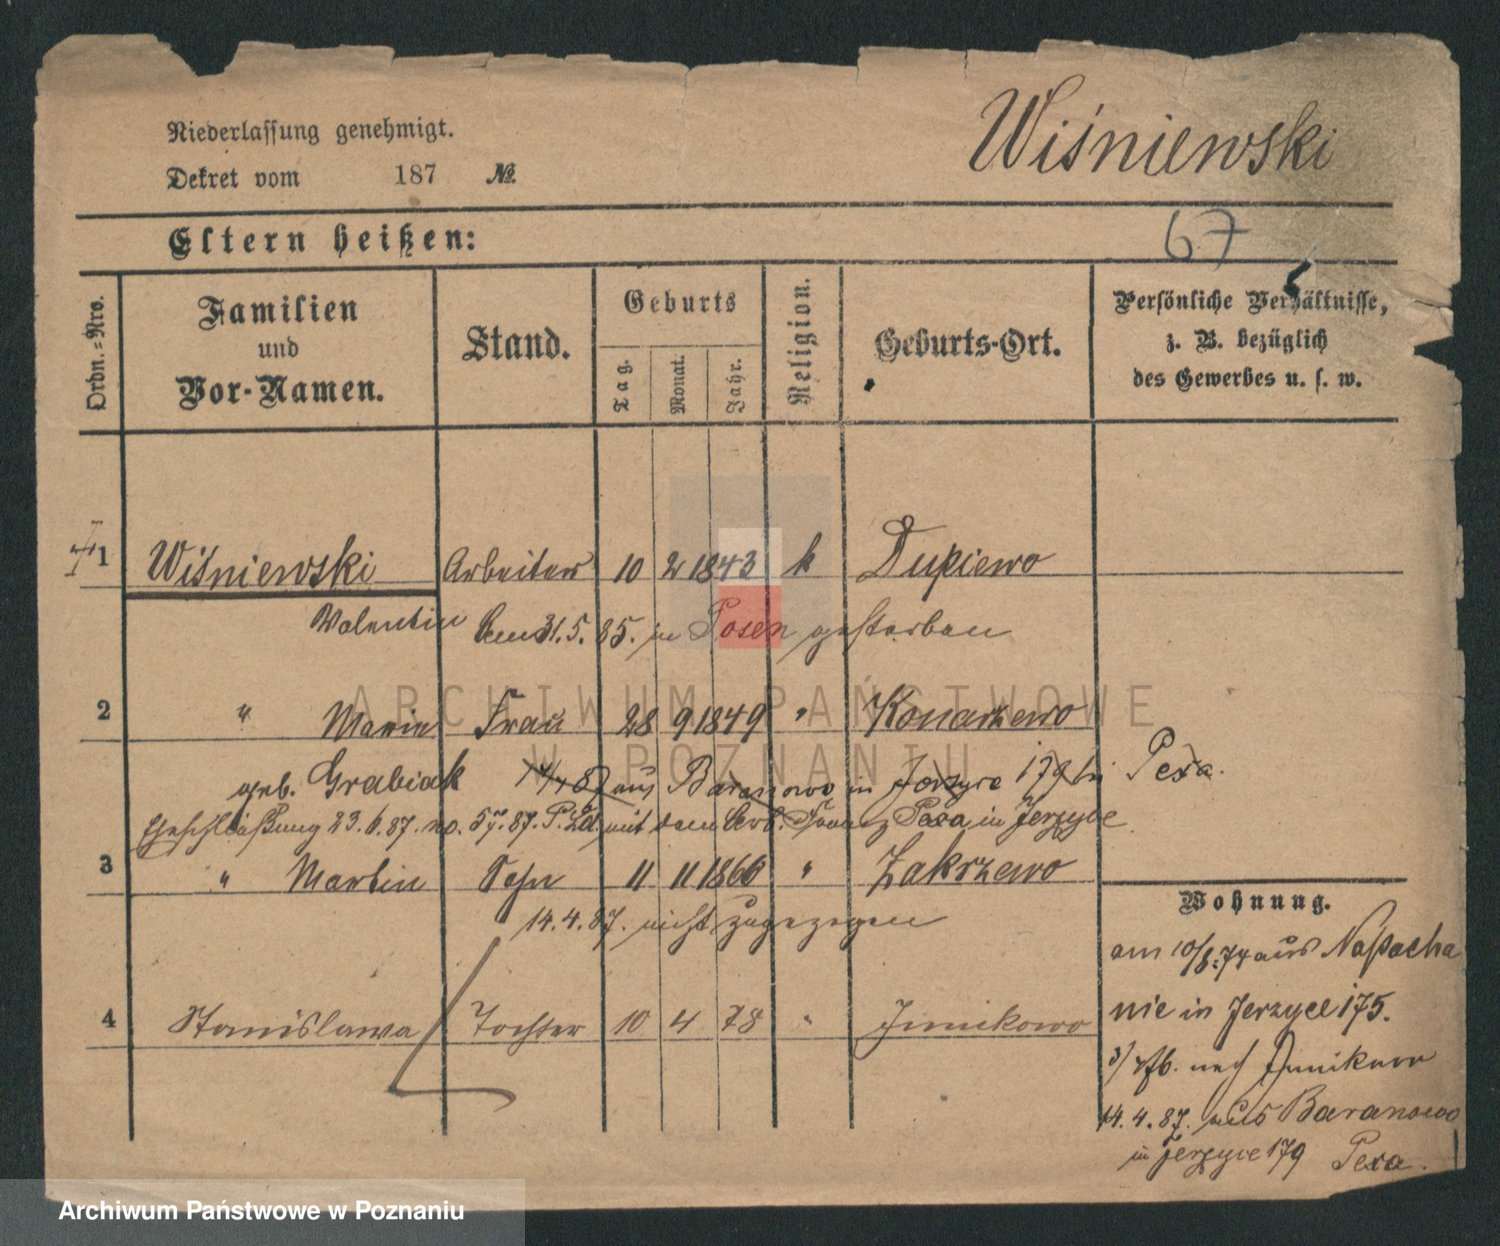 Niederlassung genehmigt.
Dekret vom 187 №.
Wiśniewski
Eltern heißen:
67
Ordn.-Nro.
Familien und Vor-Namen.
Stand.
Geburts
Tag. Monat. Jahr.
Religion.
Geburts-Ort.
Persönliche Verhältnisse,
z. B. bezüglich
des Gewerbes u. s. w.
1 Wiśniewski Arbeiter 10 2 1843 k Dupiewo
Valentin 31.5.85. in Posen gestorben
2 " Marie Frau 28 9 1849 " Konarzewo
geb. Grabiak aus Baranowo in Jerzyce 179 bei Pexa.
Eheschließung 23.6.87. no. 57.87. P. mit dem Franz Pexa in Jerzyce
3 " Martin Sohn 11 11 1866 " Zakrzewo
14.4.87. nicht zugezogen
4 Stanislawa Tochter 10 4 78 " Junikowo
Wohnung.
am 10/8.74 aus Naßacha
nie in Jerzyce 175.
3/ nach Junikowo
14.4.87. aus Baranowo
in Jerzyce 179 Pexa.
ARCHIWUM PAŃSTWOWE
W POZNANIU
Archiwum Państwowe w Poznaniu